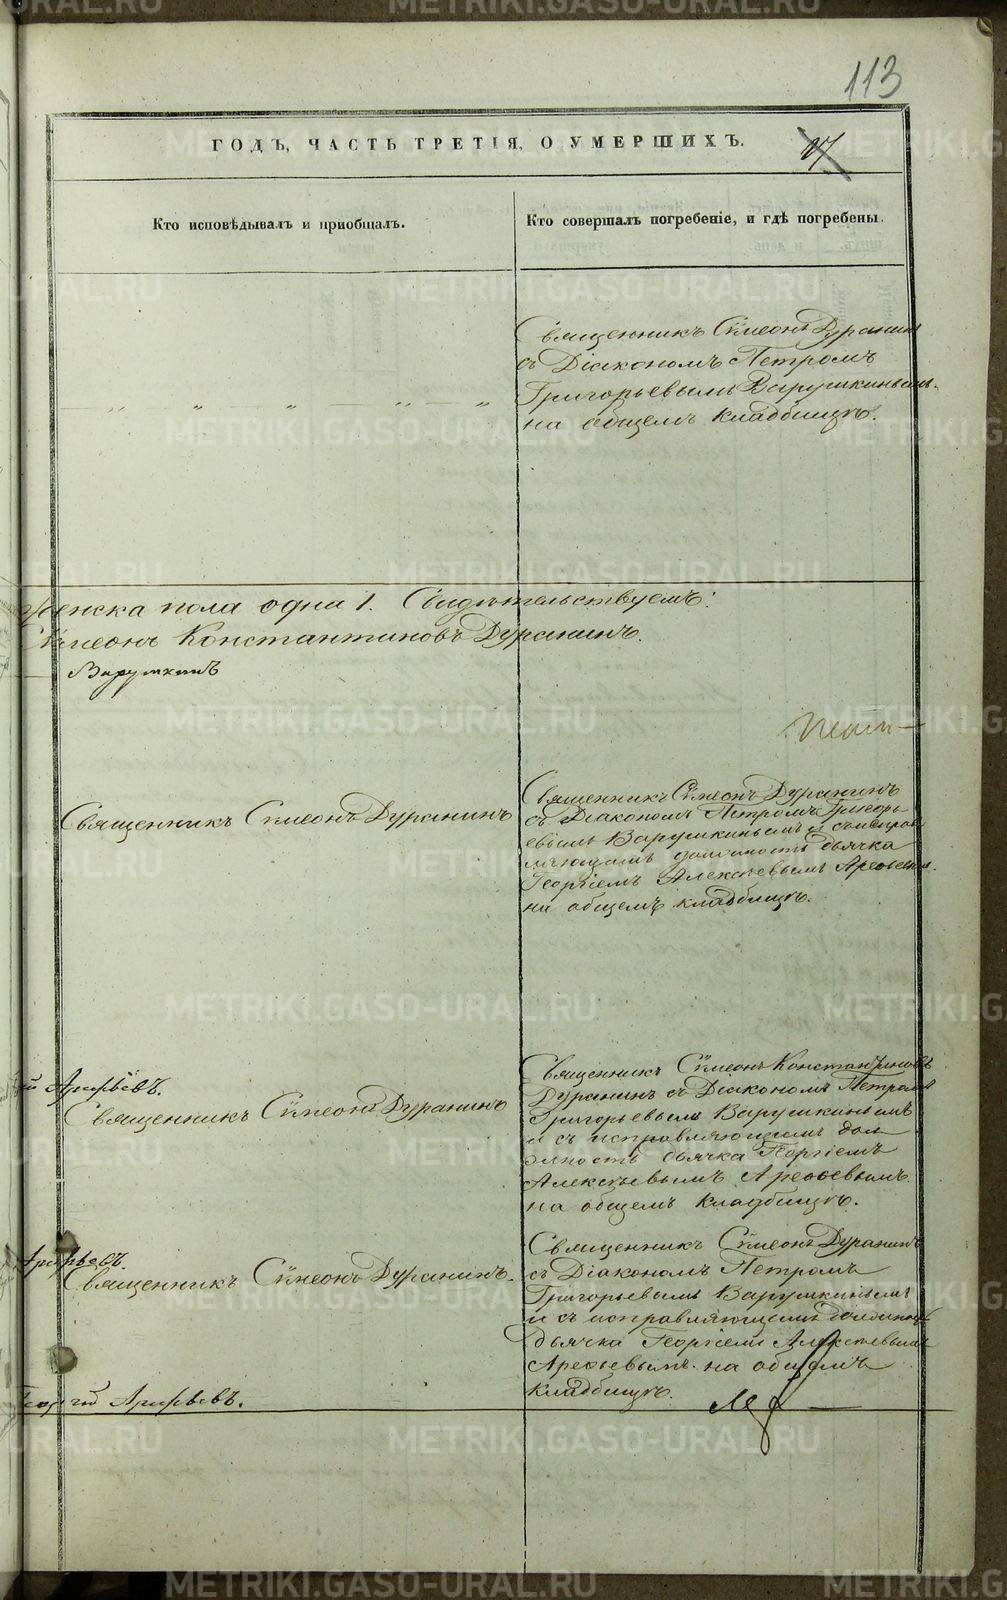 113
ГОДЪ, ЧАСТЬ ТРЕТІЯ, О УМЕРШИХЪ.
Кто исповѣдывалъ и приобщалъ.
Кто совершалъ погребеніе, и гдѣ погребены.
Священникъ Сѵмеонъ Дуранинъ
съ Діакономъ Петромъ
Григорьевымъ Варушкинымъ.
на общемъ кладбищѣ.
женска пола одна 1. Свидѣтельствуемъ:
Сѵмеонъ Константиновъ Дуранинъ.
Варушкинъ
Священникъ Сѵмеонъ Дуранинъ
Священникъ Сѵмеонъ Дуранинъ
съ Діакономъ Петромъ Григорь-
евымъ Варушкинымъ и съ исправ
ляющимъ должность дьячка
Георгіемъ Алексѣевымъ Арефьевым.
на общемъ кладбищѣ.
Арефьевъ.
Священникъ Сѵмеонъ Дуранинъ
Священникъ Сѵмеонъ Константиновъ
Дуранинъ съ Діакономъ Петромъ
Григорьевымъ Варушкинымъ
и съ исправляющимъ дол
жность дьячка Георгіемъ
Алексѣевымъ Арефьевымъ.
на общемъ кладбищѣ.
Арефьевъ.
Священникъ Сѵмеонъ Дуранинъ.
Священникъ Сѵмеонъ Дуранинъ
съ Діакономъ Петромъ
Григорьевымъ Варушкинымъ
и съ исправляющимъ должность
дьячка Георгіемъ Алексѣевымъ
Арефьевымъ. на общемъ
кладбищѣ.
Георгій Арефьевъ.
METRIKI.GASO-URAL.RU